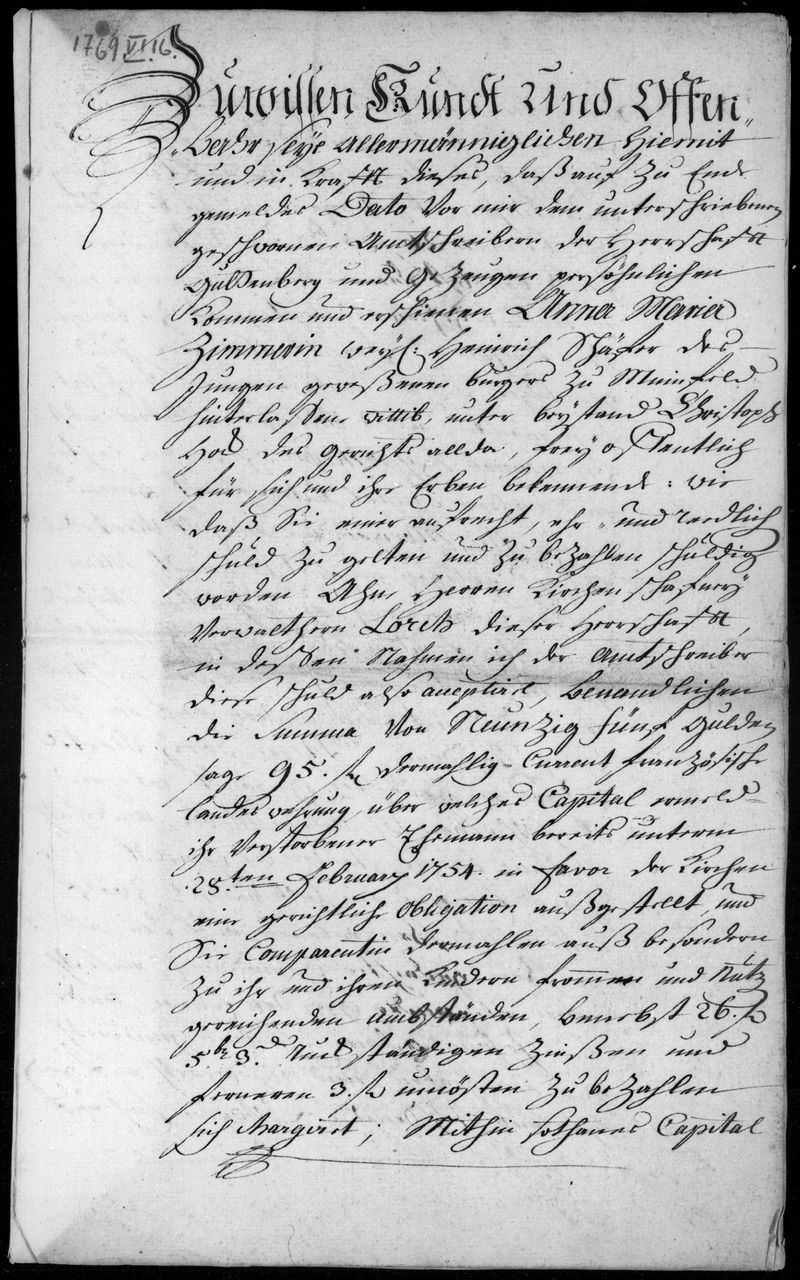 1769 VI. 16.
Zuwissen Kundt Und Offen„
„bahr seye Allermänniglichen Hiermit
und in Krafft dieses, daß auf zu Ende
gemeldes Dato Vor mir dem unterschriebenen
geschwornen Amtschreibern der Herrschafft
Guttenberg und Gezeugen persöhnlichen
Kommen und erschienen Anna Maria
Zimmerin weyl: Heinrich Schäfer des
Jungen geweßenen burgers zu Minfeld
hinterlaßene wittib, unter beystand Christoph
des Gerichts allda, frey offentlich
für sich und ihre Erben bekennende: wie
daß Sie einer aufrecht, ehr- und redlich
schuld zu gelten und zu bezahlen schuldig
worden Ahn Herren Kirchenschafney
Verwalthern Lorch dieser Herrschafft,
in deßen Nahmen ich der Amtschreiber
diese schuld also acceptiret, benandlichen
die Summa Von Neunzig fünf Gulden
sage 95. fl dermahlig-Current französische
landes wehrung, über welches Capital ermeld-
ihr Verstorbener Ehemann bereits unterm
28.ten February 1754. in favor der Kirchen
eine gerichtliche Obligation außgestellt, und
Sie Comparentin dermahlen auß besondern
zu ihr und ihren Kindern frommen und Nutz
gereichenden umbständen, benebst 26. fl
5 bz 3. d Ruckständigen Zinßen und
ferneren 3. fl zu bezahlen
sich ; Mithin sothanes Capital